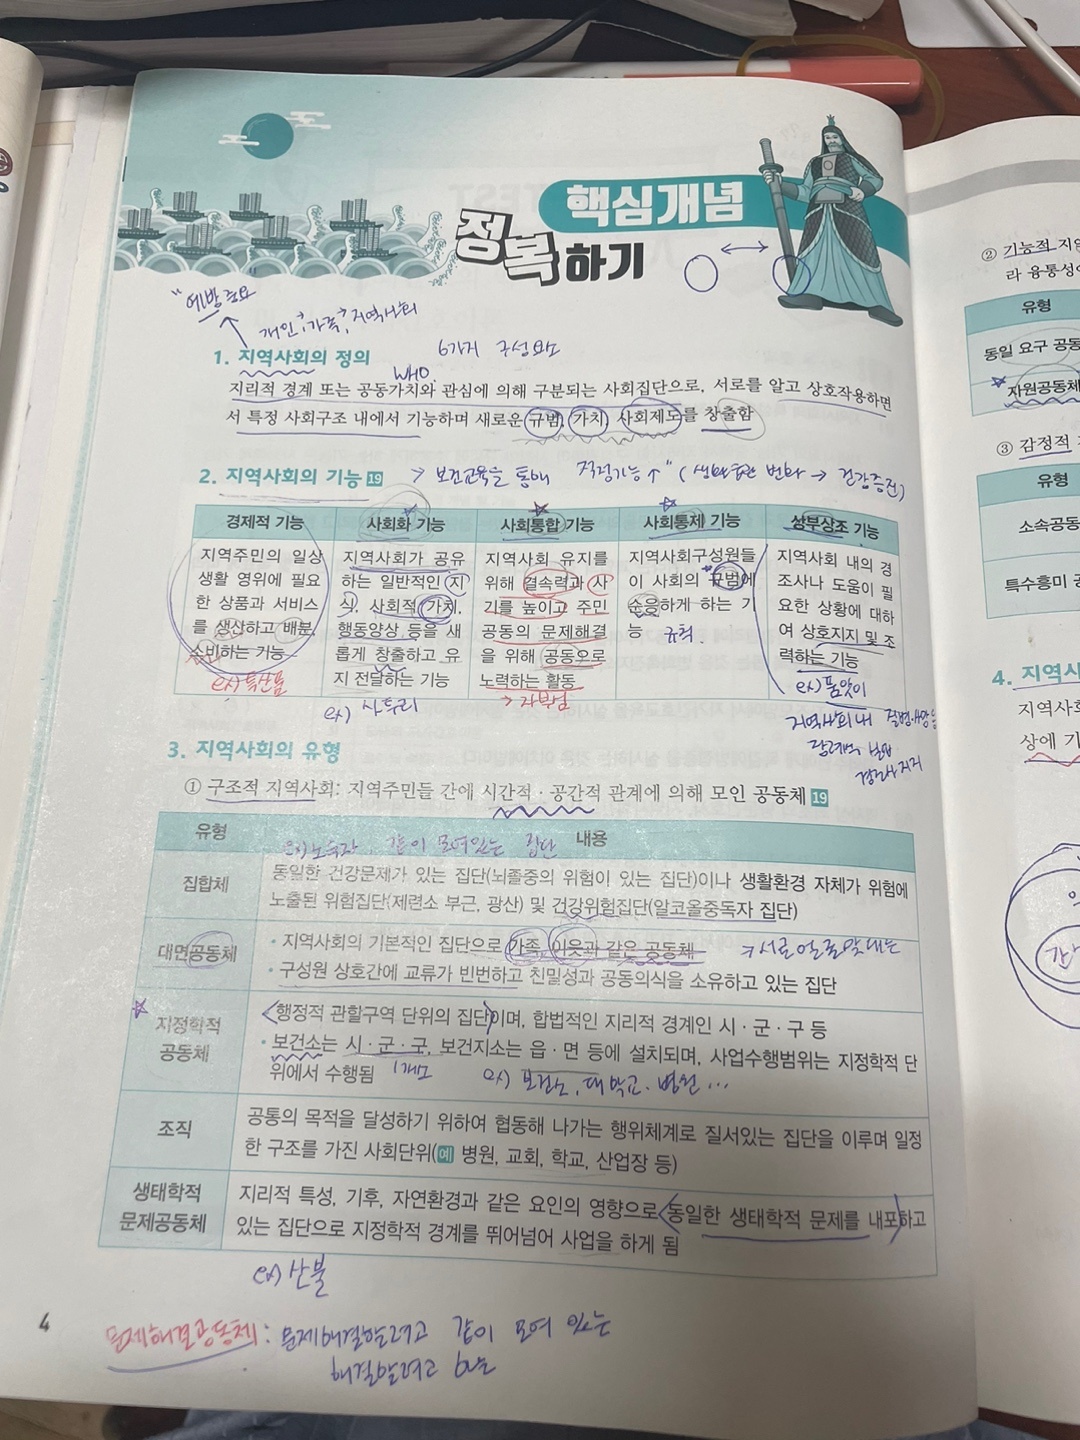 핵심개념
정복하기
"예방중요"
개인, 가족, 지역사회
6가지 구성요소
1. 지역사회의 정의
WHO
지리적 경계 또는 공동가치와 관심에 의해 구분되는 사회집단으로, 서로를 알고 상호작용하면
서 특정 사회구조 내에서 기능하며 새로운 규범, 가치, 사회제도를 창출함
2. 지역사회의 기능 19
> 보건교육을 통해 적정기능↑" (생활습관 변화 → 건강증진)
경제적 기능
사회화 기능
사회통합 기능
사회통제 기능
상부상조 기능
지역주민의 일상
생활 영위에 필요
한 상품과 서비스
를 생산하고 배분,
소비하는 기능
ex) 특산품
지역사회가 공유
하는 일반적인 지
식, 사회적 가치,
행동양상 등을 새
롭게 창출하고 유
지 전달하는 기능
ex) 사투리
지역사회 유지를
위해 결속력과 사
기를 높이고 주민
공동의 문제해결
을 위해 공동으로
노력하는 활동
지역사회구성원들
이 사회의 규범에
순응하게 하는 기
능
규칙
지역사회 내의 경
조사나 도움이 필
요한 상황에 대하
여 상호지지 및 조
력하는 기능
ex) 품앗이
지역사회 내 질병·사망 등
경조사 지지
3. 지역사회의 유형
① 구조적 지역사회: 지역주민들 간에 시간적·공간적 관계에 의해 모인 공동체 19
유형
내용
ex) 노숙자 같이 모여있는 집단
집합체
동일한 건강문제가 있는 집단(뇌졸중의 위험이 있는 집단)이나 생활환경 자체가 위험에
노출된 위험집단(제련소 부근, 광산) 및 건강위험집단(알코올중독자 집단)
대면공동체
• 지역사회의 기본적인 집단으로 가족, 이웃과 같은 공동체
→ 서로 얼굴 맞대는
• 구성원 상호간에 교류가 빈번하고 친밀성과 공동의식을 소유하고 있는 집단
지정학적
공동체
• 행정적 관할구역 단위의 집단이며, 합법적인 지리적 경계인 시·군·구 등
• 보건소는 시·군·구, 보건지소는 읍·면 등에 설치되며, 사업수행범위는 지정학적 단
위에서 수행됨
1개소
ex) 보건소, 대학교, 병원 ...
조직
공통의 목적을 달성하기 위하여 협동해 나가는 행위체계로 질서있는 집단을 이루며 일정
한 구조를 가진 사회단위(예 병원, 교회, 학교, 산업장 등)
생태학적
문제공동체
지리적 특성, 기후, 자연환경과 같은 요인의 영향으로 동일한 생태학적 문제를 내포하고
있는 집단으로 지정학적 경계를 뛰어넘어 사업을 하게 됨
ex) 산불
문제해결공동체: 문제해결할려고 같이 모여 있는
해결할려고
4
② 기능적 지역
라 융통성이
유형
동일 요구 공동
자원공동체
③ 감정적
유형
소속공동
특수흥미 공
4. 지역사
지역사회
상에 기